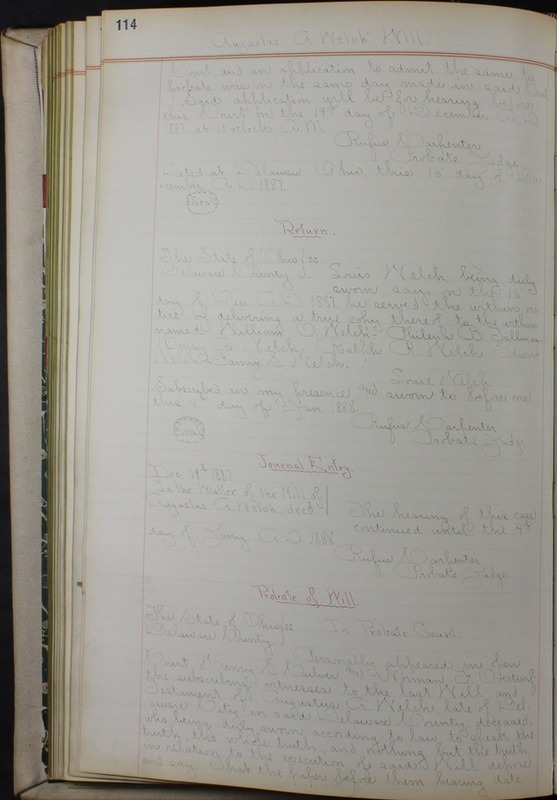 114
Augustus A Welch Will
Court, and an application to admit the same to
probate was on the same day made in said Court
Said application will be for hearing before
this Court on the 19th day of December A. D.
1887 at 10 o'clock A. M.
Rufus Carpenter
Probate Judge
Dated at Delaware Ohio this 15 day of De-
cember A. D 1887
Seal
Return.
The State of Ohio } ss
Delaware County } Louis Welch being duly
sworn says on the 15
day of Dec A. D 1887 he served the within no-
tice by delivering a true copy thereof to the within
named William O Welch B
Henry A. Welch, Ralph R. Welch Edward
Welch Fanny Welch.
Louis Welch
Subscribed in my presence and sworn to before me
this 4th day of Jan 1888.
Rufus Carpenter
Seal
Probate Judge
Journal Entry.
Dec. 19th 1887
In the Matter of the Will of
Augustus A Welch, decd } The hearing of this case
continued until the 4th
day of Jany A. D 1888
Rufus Carpenter
Probate Judge.
Probate of Will.
The State of Ohio } ss
Delaware County } In Probate Court.
Personally appeared in open
Court Henry and Norman
the subscribing witnesses to the last Will and
Testament of Augustus A Welch late of Del-
aware City in said Delaware County, deceased,
who being duly sworn according to law to speak the
truth, the whole truth, and nothing but the truth,
in relation to the execution of said Will, depose
and say: That the paper before them bearing date